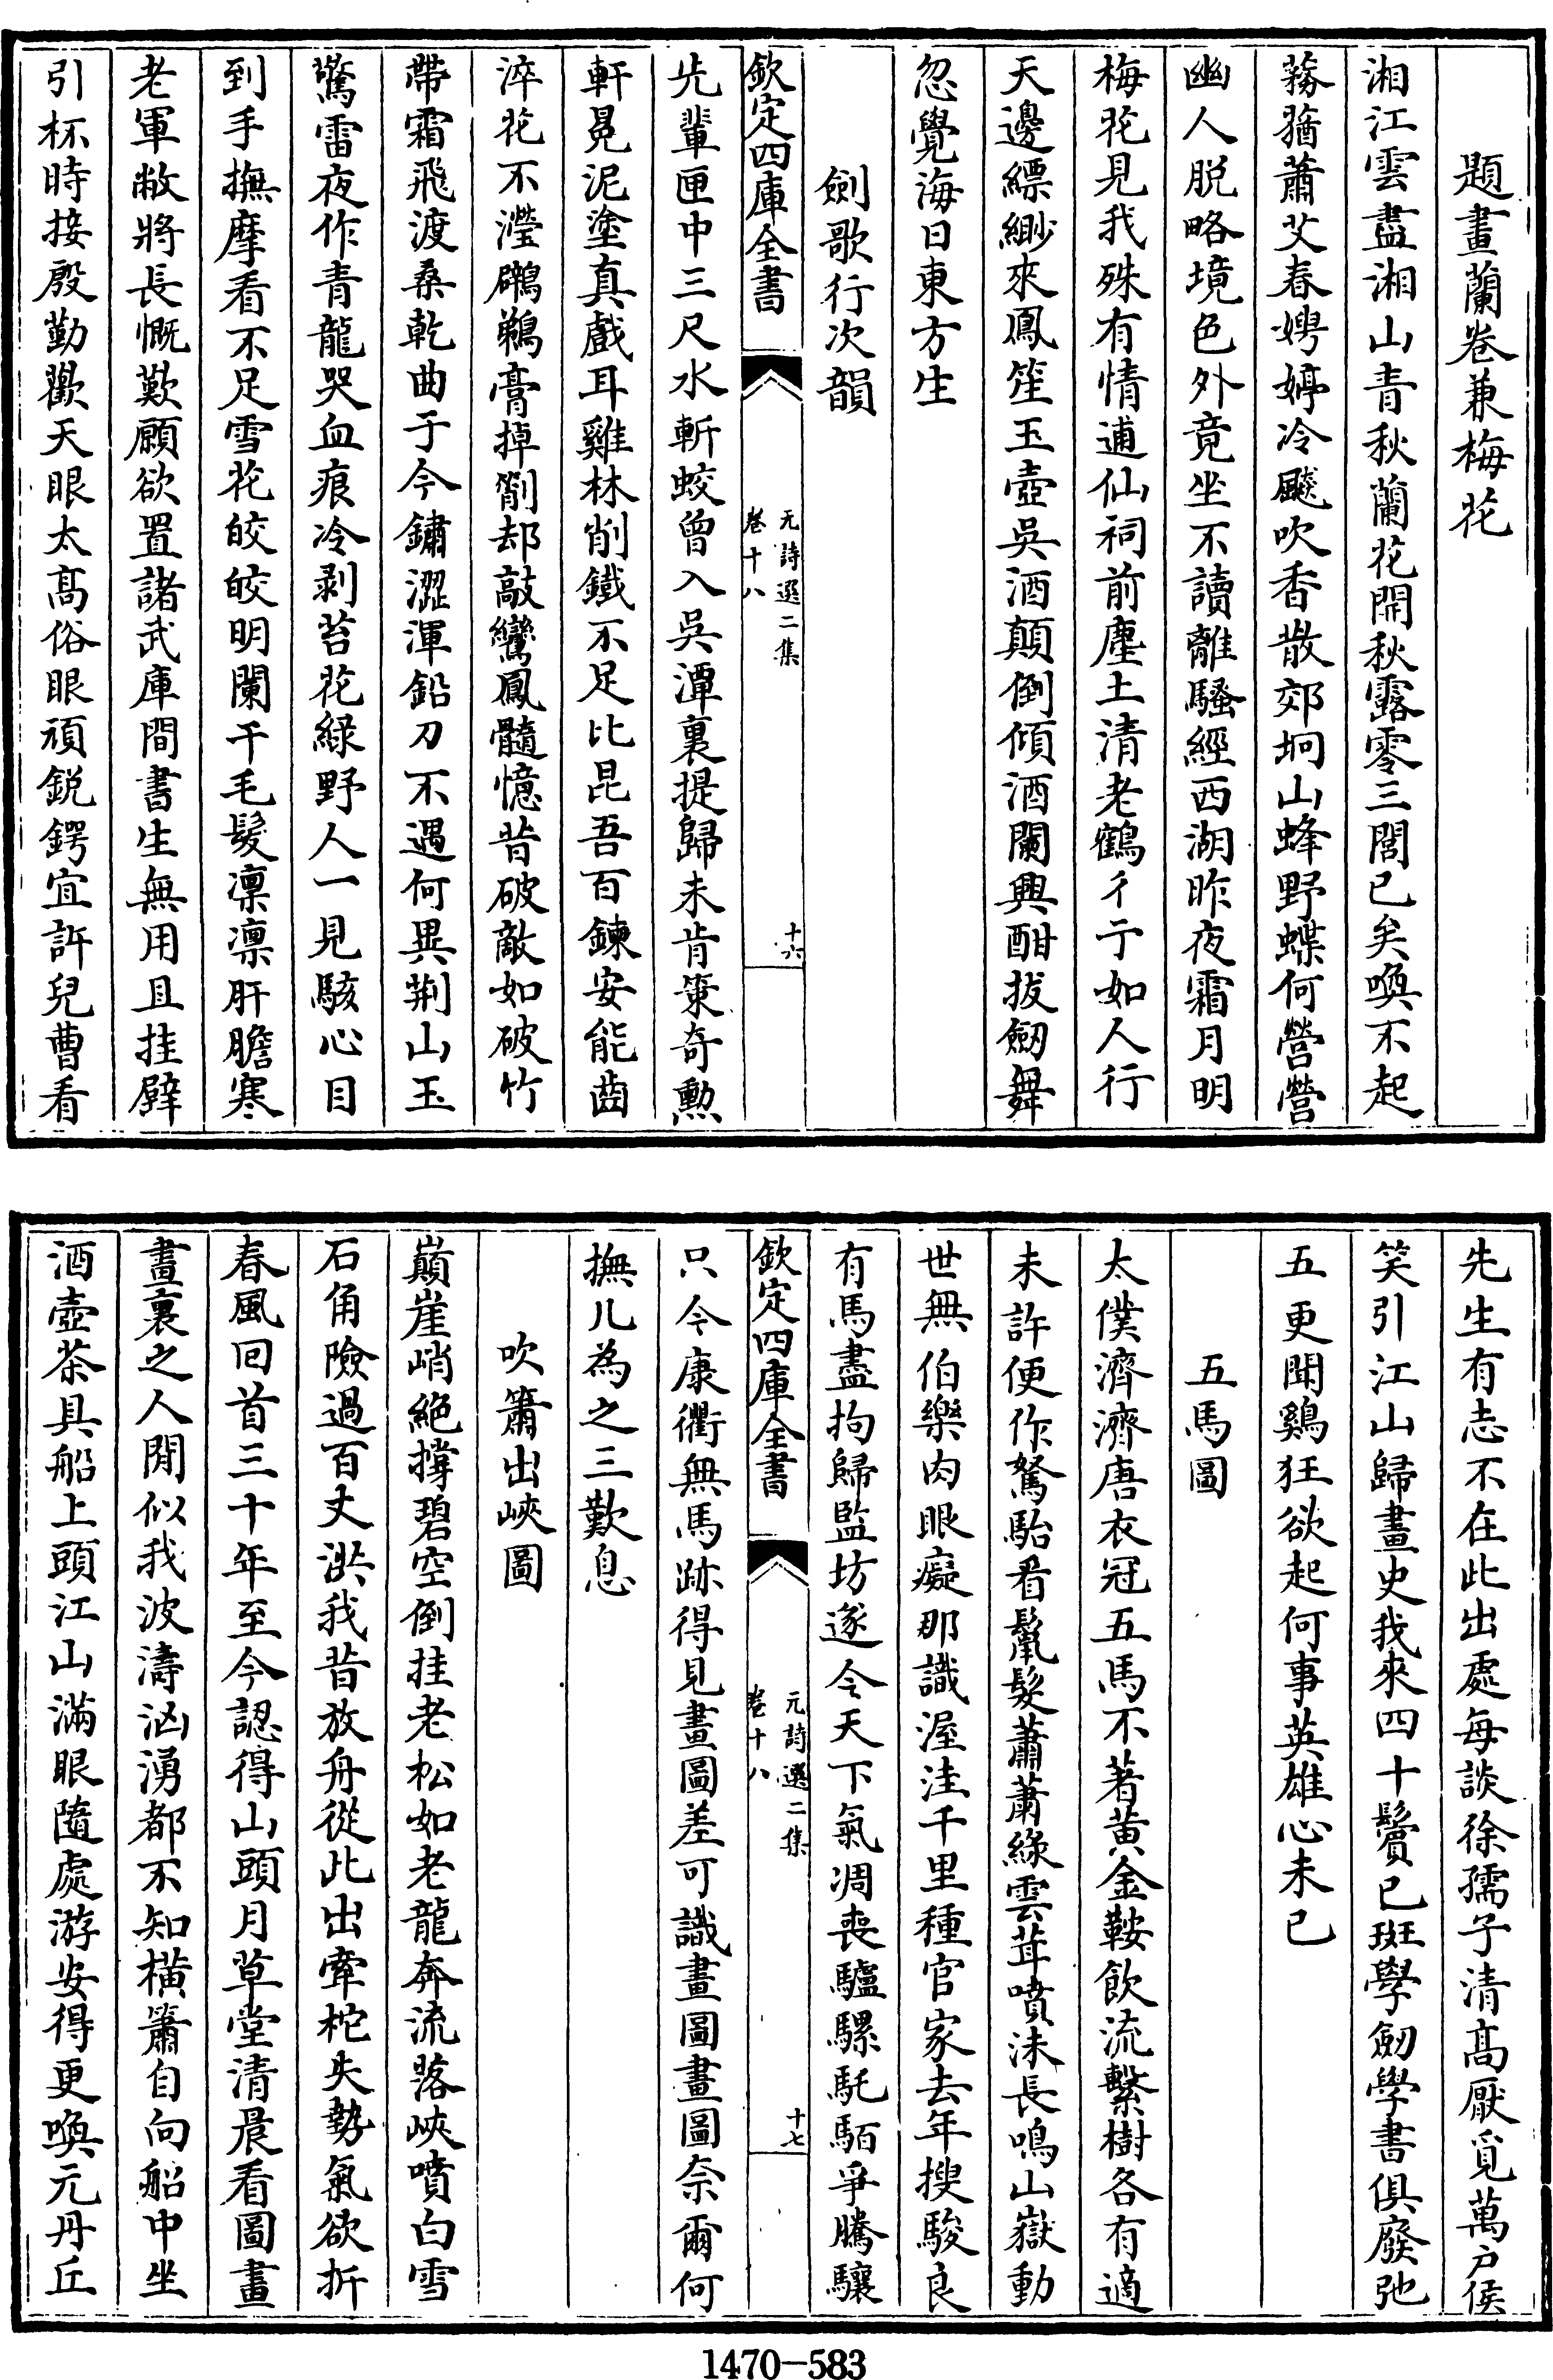 題畫蘭卷兼梅花
湘江雲盡湘山青秋蘭花開秋露零三閭已矣喚不起
蓊蕕蕭艾春娉婷冷飈吹香散郊坰山蜂野蝶何營營
幽人脱略境色外竟坐不讀離騷經西湖昨夜霜月明
梅花見我殊有情逋仙祠前塵土清老鶴彳亍如人行
天邊縹緲來鳳笙玉壺吳酒顛倒傾酒闌興酣拔劒舞
忽覺海日東方生
劍歌行次韻
欽定四庫全書
元詩選二集
卷十八
十六
先輩匣中三尺水斬蛟曾入吳潭裏提歸未肯策奇勲
軒冕泥塗真戲耳雞林削鐵不足比昆吾百鍊安能齒
淬花不瀅鸊鵜膏掉箾却敲鸞鳳髓憶昔破敵如破竹
帶霜飛渡桑乾曲于今鏽澀渾鉛刀不遇何異荆山玉
驚雷夜作青龍哭血痕冷剥苔花緑野人一見駭心目
到手撫摩看不足雪花皎皎明闌干毛髮凛凛肝膽寒
老軍敝將長慨歎顧欲置諸武庫間書生無用且挂壁
引杯時接殷勤歡天眼太髙俗眼頑鋭鍔宜許兒曹看
先生有志不在此出處每談徐孺子清髙厭覓萬户侯
笑引江山歸畫史我來四十鬢已斑學劒學書俱廢弛
五更聞鷄狂欲起何事英雄心未已
五馬圖
太僕濟濟唐衣冠五馬不著黄金鞍飲流繫樹各有適
未許便作駑駘看鬣髮蕭蕭綠雲茸噴沫長鳴山嶽動
世無伯樂肉眼癡那識渥洼千里種官家去年搜駿良
有馬盡拘歸監坊遂令天下氣凋喪驢騾馲駞爭騰驤
欽定四庫全書
元詩選二集
卷十八
十七
只今康衢無馬跡得見畫圖差可識畫圖畫圖奈爾何
撫几為之三歎息
吹簫出峽圖
巔崖峭絶撐碧空倒挂老松如老龍奔流落峽噴白雪
石角險過百丈洪我昔放舟從此出牽柁失勢氣欲折
春風回首三十年至今認得山頭月草堂清晨看圖畫
畫裏之人閒似我波濤洶湧都不知横簫自向船中坐
酒壺茶具船上頭江山滿眼隨處游安得更喚元丹丘
1470-583